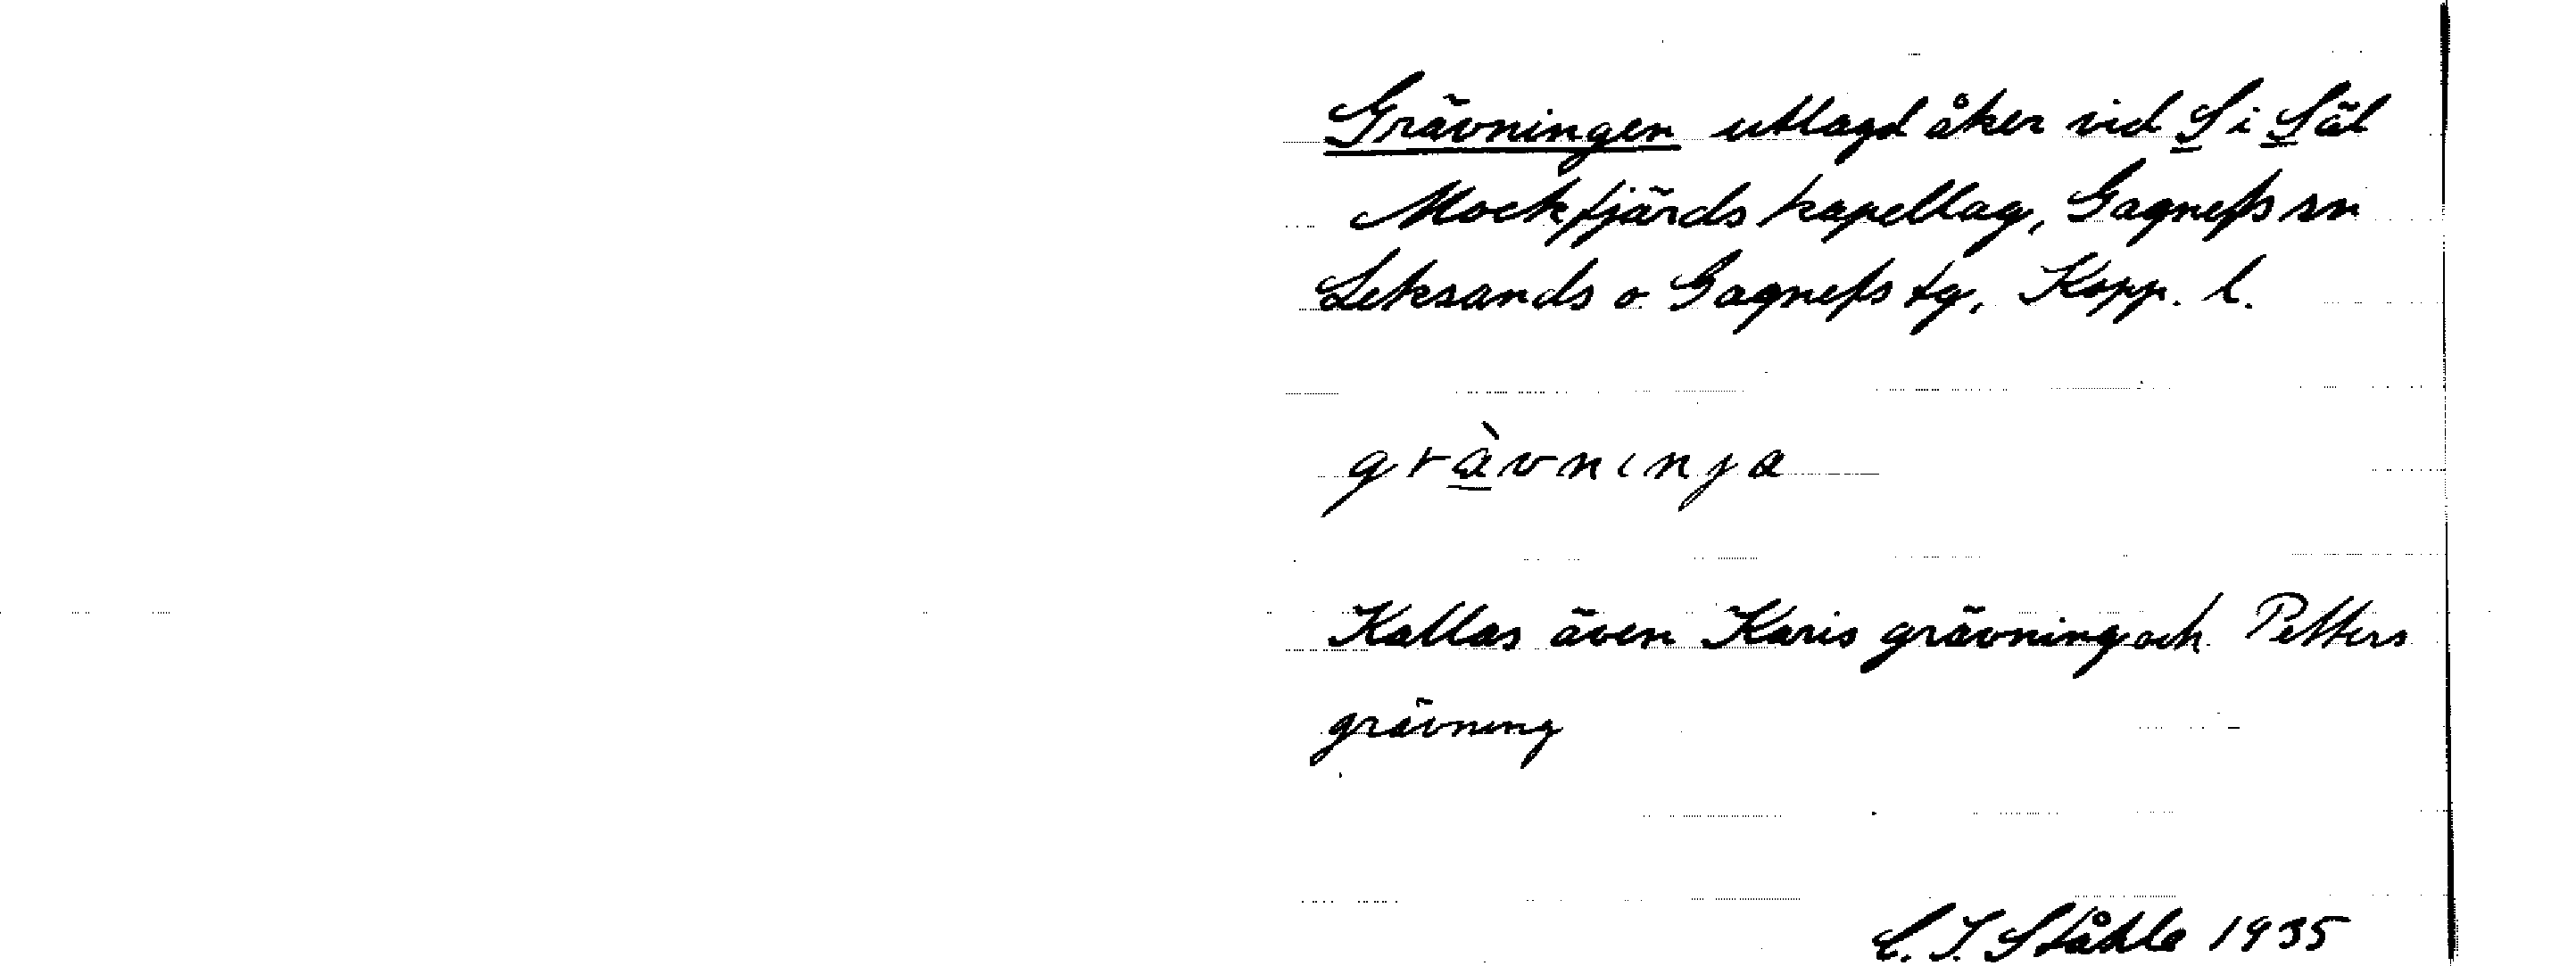 Grävningen utlagd åker vid S i Säl
Mockfjärds kapellag, Gagnefs sn
Leksands o Gagnefs tg, Kopp. l.
grävninja
Kallas även Karis grävning och Petters
grävning
C. I. Ståhle 1935